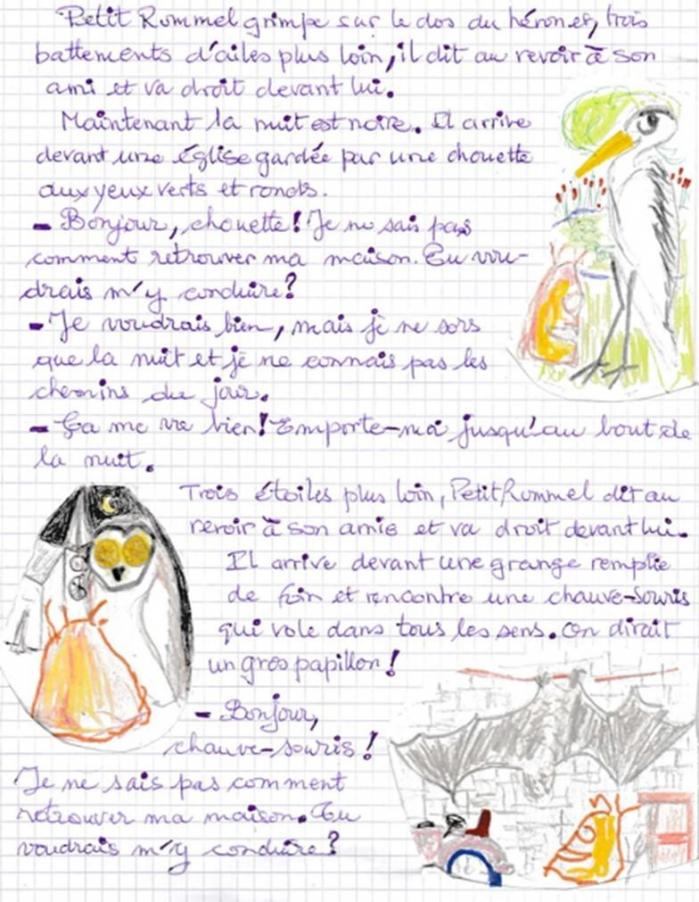 Petit Rommel grimpe sur le dos du héron et, trois
battements d'ailes plus loin, il dit au revoir à son
ami et va droit devant lui.
Maintenant la nuit est noire. Il arrive
devant une église gardée par une chouette
aux yeux verts et ronds.
- Bonjour, chouette! Je ne sais pas
comment retrouver ma maison. Tu vou-
drais m'y conduire?
- Je voudrais bien, mais je ne sors
que la nuit et je ne connais pas les
chemins du jour.
- Ça me va bien! Emporte-moi jusqu'au bout de
la nuit.
Trois étoiles plus loin, Petit Rommel dit au
revoir à son amie et va droit devant lui.
Il arrive devant une grange remplie
de foin et rencontre une chauve-souris
qui vole dans tous les sens. On dirait
un gros papillon!
- Bonjour,
chauve-souris!
Je ne sais pas comment
retrouver ma maison. Tu
voudrais m'y conduire?